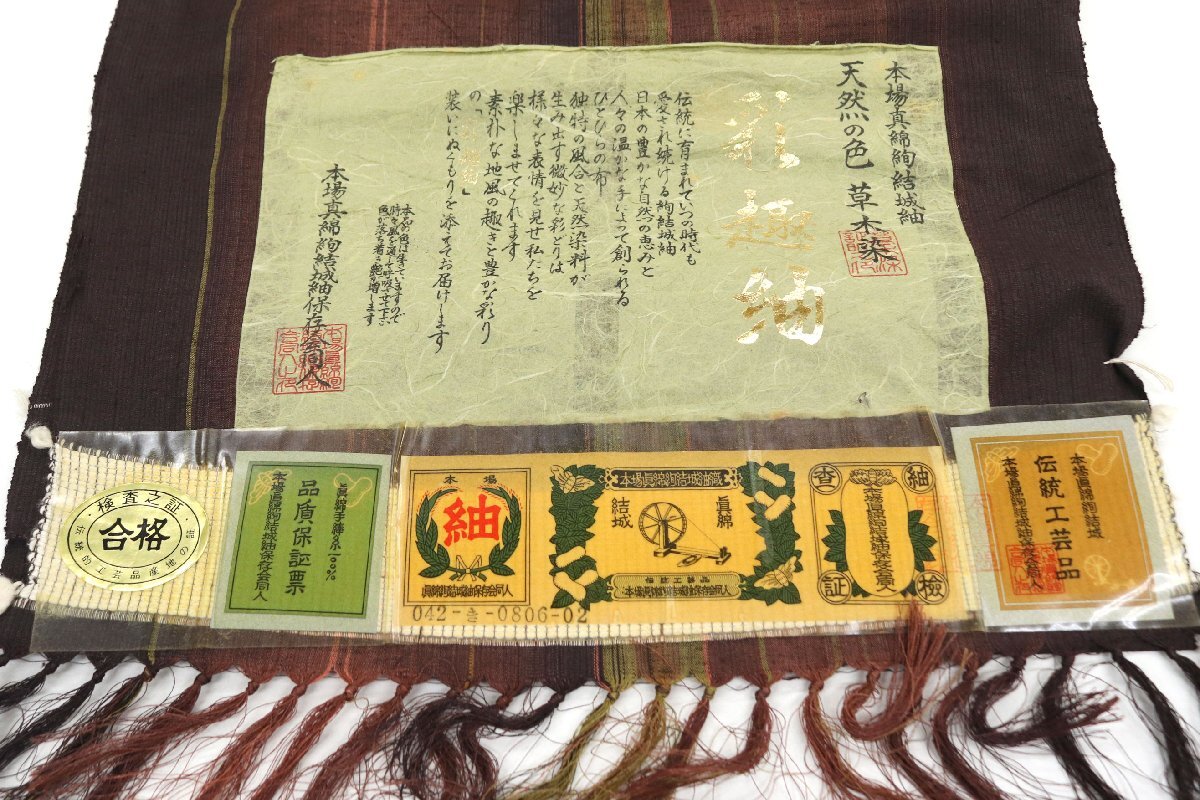 本場真綿絢結城紬
天然の色 草木染
紬
伝統に育まれていつの時代も
愛され続ける絢結城紬
日本の豊かな自然の恵みと
人々の温かな手によって創られる
ひとひらの布
独特の風合と天然染料が
生み出す微妙な彩どりは
様々な表情を見せ私たちを
楽しませてくれます
素朴な地風の趣きと豊かな彩り
の「
」
装いにぬくもりを添えてお届けします
本場真綿絢結城紬保存会同人
・検査之証・
合格
眞綿手つむぎ糸100%
品質保証票
本場眞綿絢結城紬保存会同人
本場
紬
眞綿絢結城紬保存会同人
042-き-0806-02
本場眞綿絢結城紬織
眞綿
結城
伝統工芸品
本場眞綿絢結城紬保存会同人
紬
査
検
証
本場眞綿絢結城
伝統工芸品
本場眞綿絢結城紬保存会同人